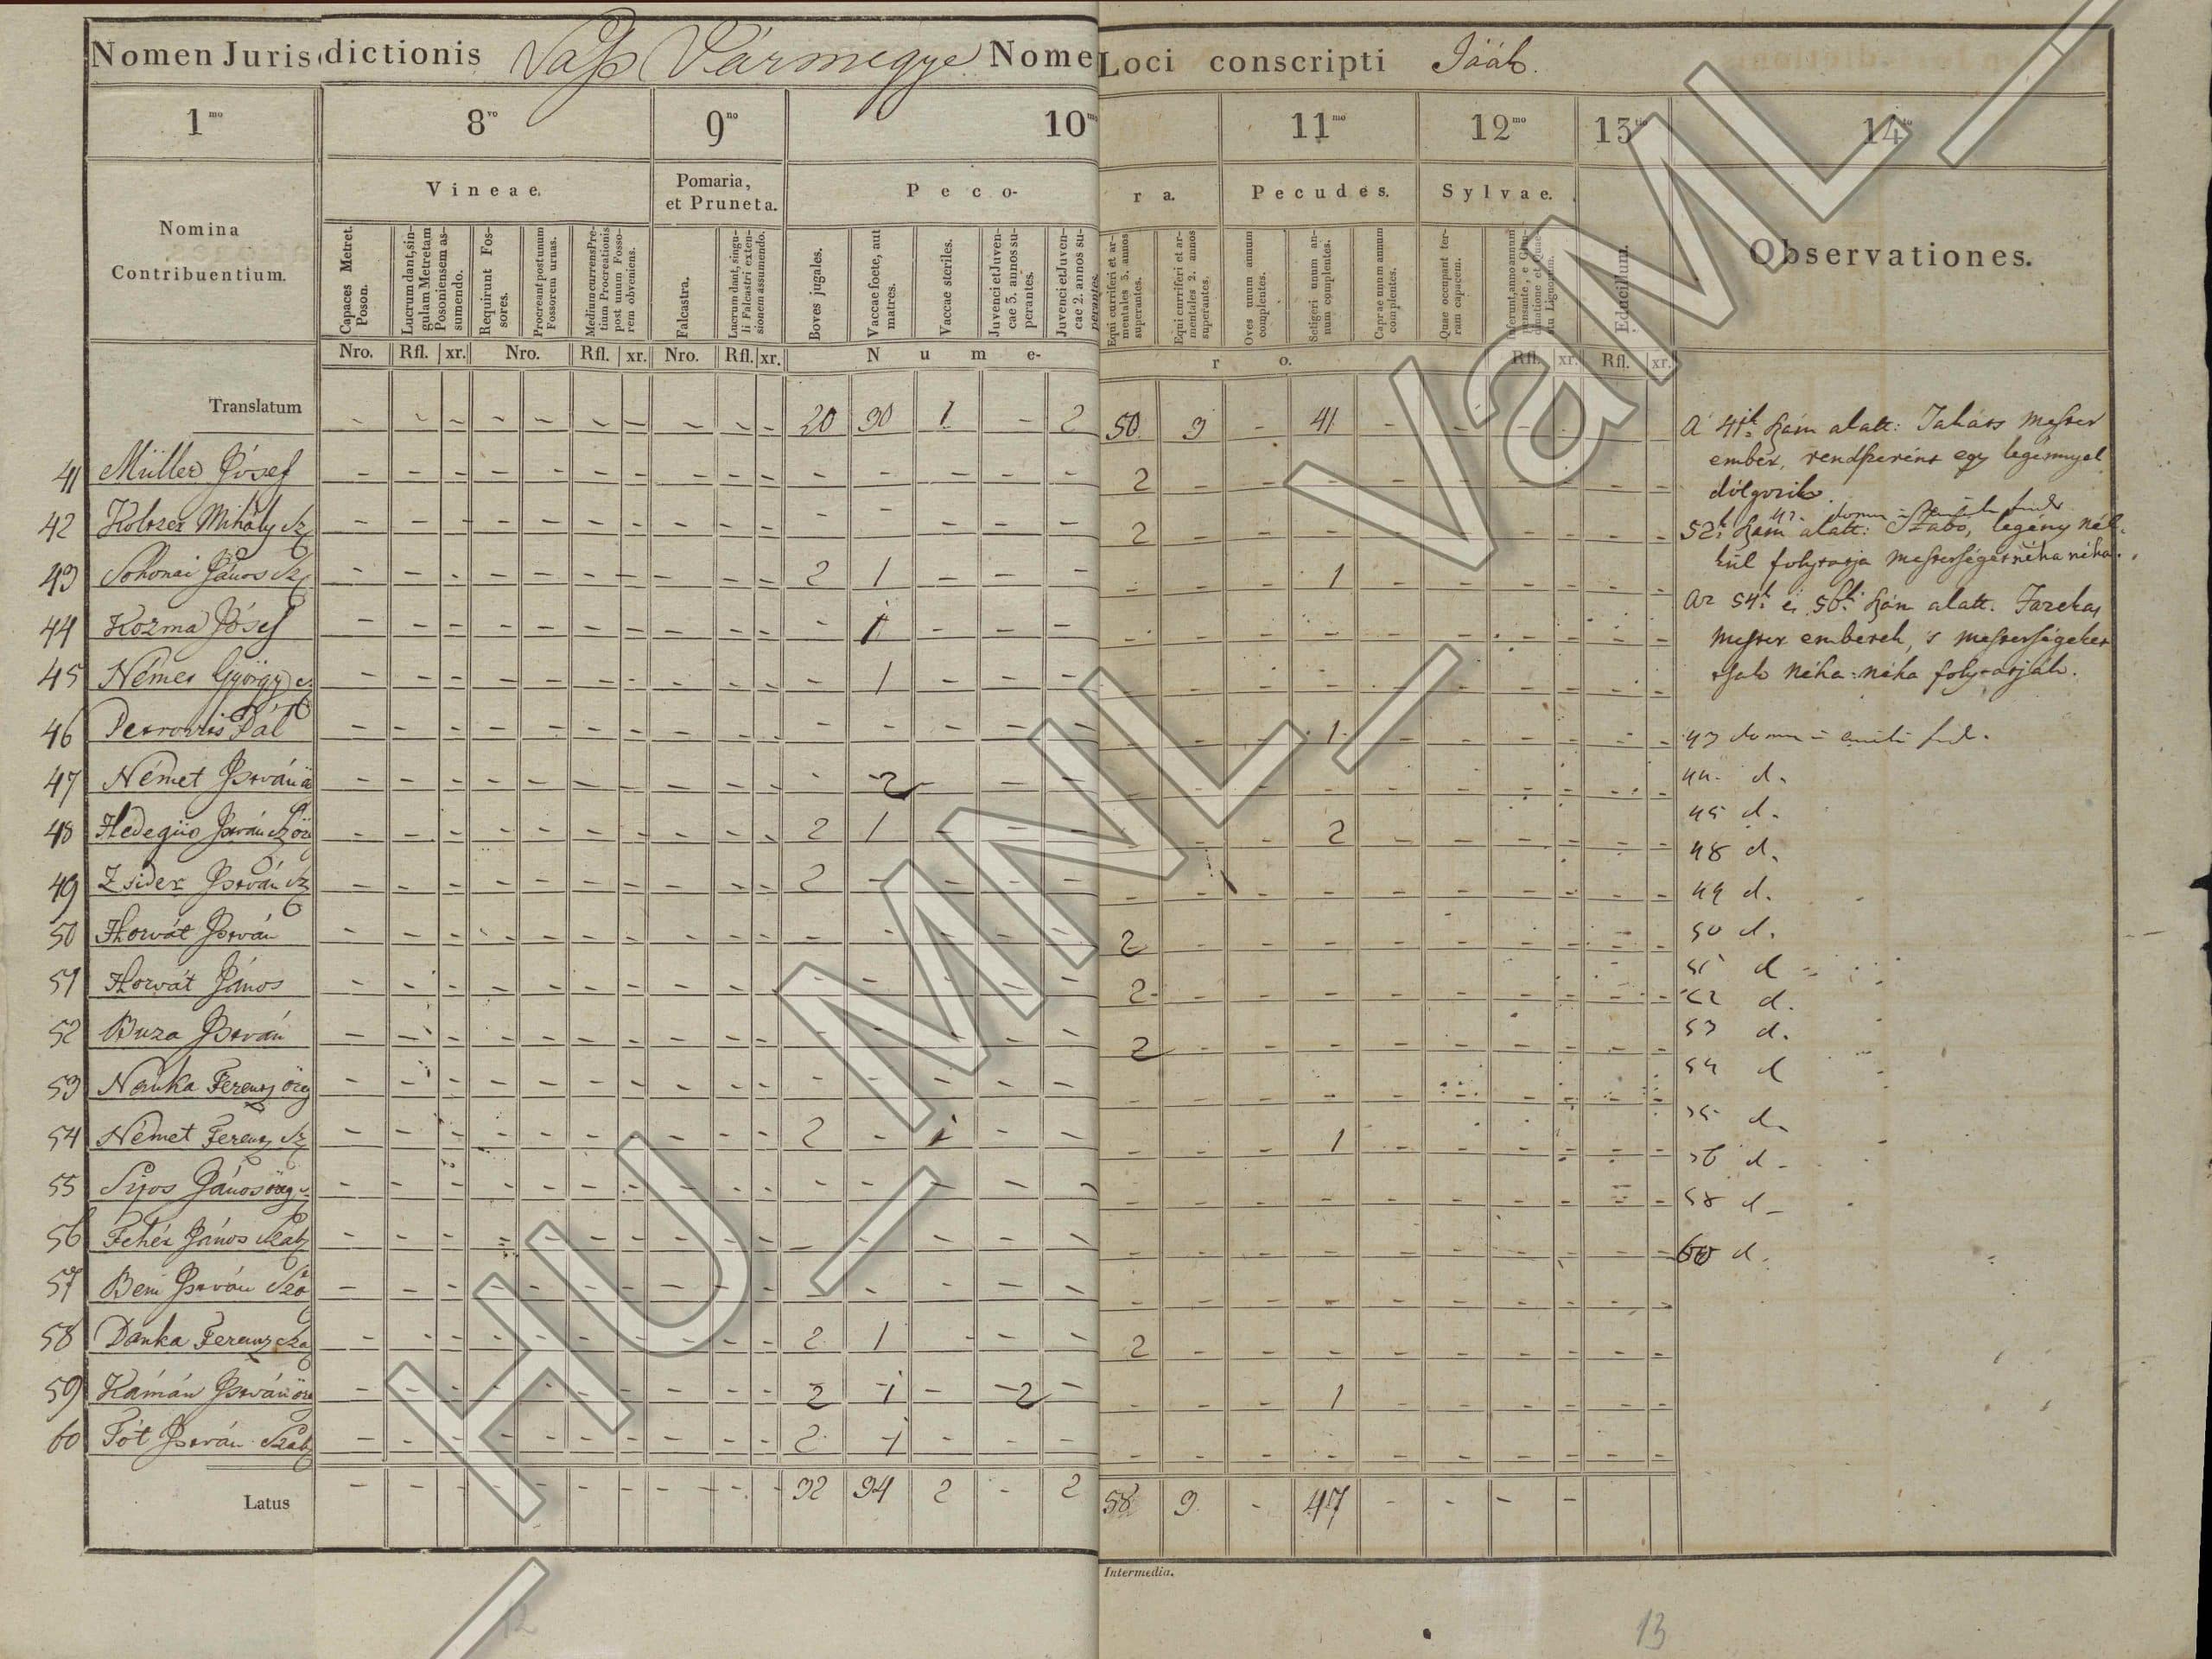 Nomen Jurisdictionis Vass Vármegye Nomen Loci conscripti Jáák.
1mo 8vo 9no 10mo 11mo 12mo 13tio 14to
Nomina Contribuentium.
Vineae.
Pomaria, et Pruneta.
Pecora.
Pecudes.
Sylvae.
Educillum.
Observationes.
Capaces Metret. Poson.
Lucrum dant, singulam Metretam Posoniensem assumendo.
Requirunt Fossores.
Procreant post unum Fossorem urnas.
Medium currens Pretium Procreationis post unum Fossorem obveniens.
Falcastra.
Lucrum dant, singuli Falcastri extensionem assumendo.
Boves jugales.
Vaccae foetae, aut matres.
Vaccae steriles.
Juvenci et Juvencae 3. annos superantes.
Juvenci et Juvencae 2. annos superantes.
Equi curriferi et armentales 3. annos superantes.
Equi curriferi et armentales 2. annos superantes.
Oves unum annum complentes.
Setigeri unum annum complentes.
Caprae unum annum complentes.
Quae occupant terram capacem.
Nro. Rfl. xr. Nro. Rfl. xr. Nro. Rfl. xr. Nume- ro. Rfl. xr. Rfl. xr.
Translatum - - - - - - - - - - 20 30 1 - 2 50 3 - 41 - - - - - -
41 Müller Jósef - - - - - - - - - - - - - - - 2 - - - - - - - - -
42 Kolozer Mihály Sz - - - - - - - - - - - - - - - 2 - - - - - - - - -
43 Sohonai János Sz - - - - - - - - - - 2 1 - - - - - - 1 - - - - - -
44 Kozma Jósef - - - - - - - - - - - 1 - - - - - - - - - - - - -
45 Német György - - - - - - - - - - - 1 - - - - - - - - - - - - -
46 Petrovits Pál - - - - - - - - - - - - - - - - - - 1 - - - - - -
47 Német István - - - - - - - - - - - 2 - - - - - - - - - - - - -
48 Hedegüs István - - - - - - - - - - 2 1 - - - - - - 2 - - - - - -
49 Zsider István Sz - - - - - - - - - - 2 - - - - - - - - - - - - - -
50 Horvát István - - - - - - - - - - - - - - - 2 - - - - - - - - -
51 Horvát János - - - - - - - - - - - - - - - 2 - - - - - - - - -
52 Buza István - - - - - - - - - - - - - - - 2 - - - - - - - - -
53 Nauka Ferencz öreg - - - - - - - - - - - - - - - - - - - - - - - - -
54 Német Ferencz Sz - - - - - - - - - - 2 - 1 - - - - - 1 - - - - - -
55 Sipos János öreg - - - - - - - - - - - - - - - - - - - - - - - - -
56 Fehér János Szab - - - - - - - - - - - - - - - - - - - - - - - - -
57 Beni István - - - - - - - - - - - - - - - - - - - - - - - - -
58 Danka Ferencz - - - - - - - - - - 2 1 - - - 2 - - - - - - - - -
59 Kámán István öreg - - - - - - - - - - 2 1 - 2 - - - - 1 - - - - - -
60 Tót István Szab - - - - - - - - - - 2 1 - - - - - - - - - - - - -
Latus - - - - - - - - - - 32 34 2 - 2 58 3 - 47 - - - -
A' 41k szám alatt: Takáts Mester
ember, rendszerént egy legénnyel
dólgozik.
52k szám alatt: Szabó, legény nél-
kül folytatja mesterségét néha néha.
Az 54k és 56k szám alatt. Fazekas
Mester emberek, 's mesterségeket
tsak néha-néha folytatják.
43 domu
44. d.
45 d.
48 d.
49 d.
50 d.
51 d
52 d.
53 d.
54 d
55 d.
56 d.
58 d.
60 d.
Intermedia.
12
13
HU_MNL_VaML_